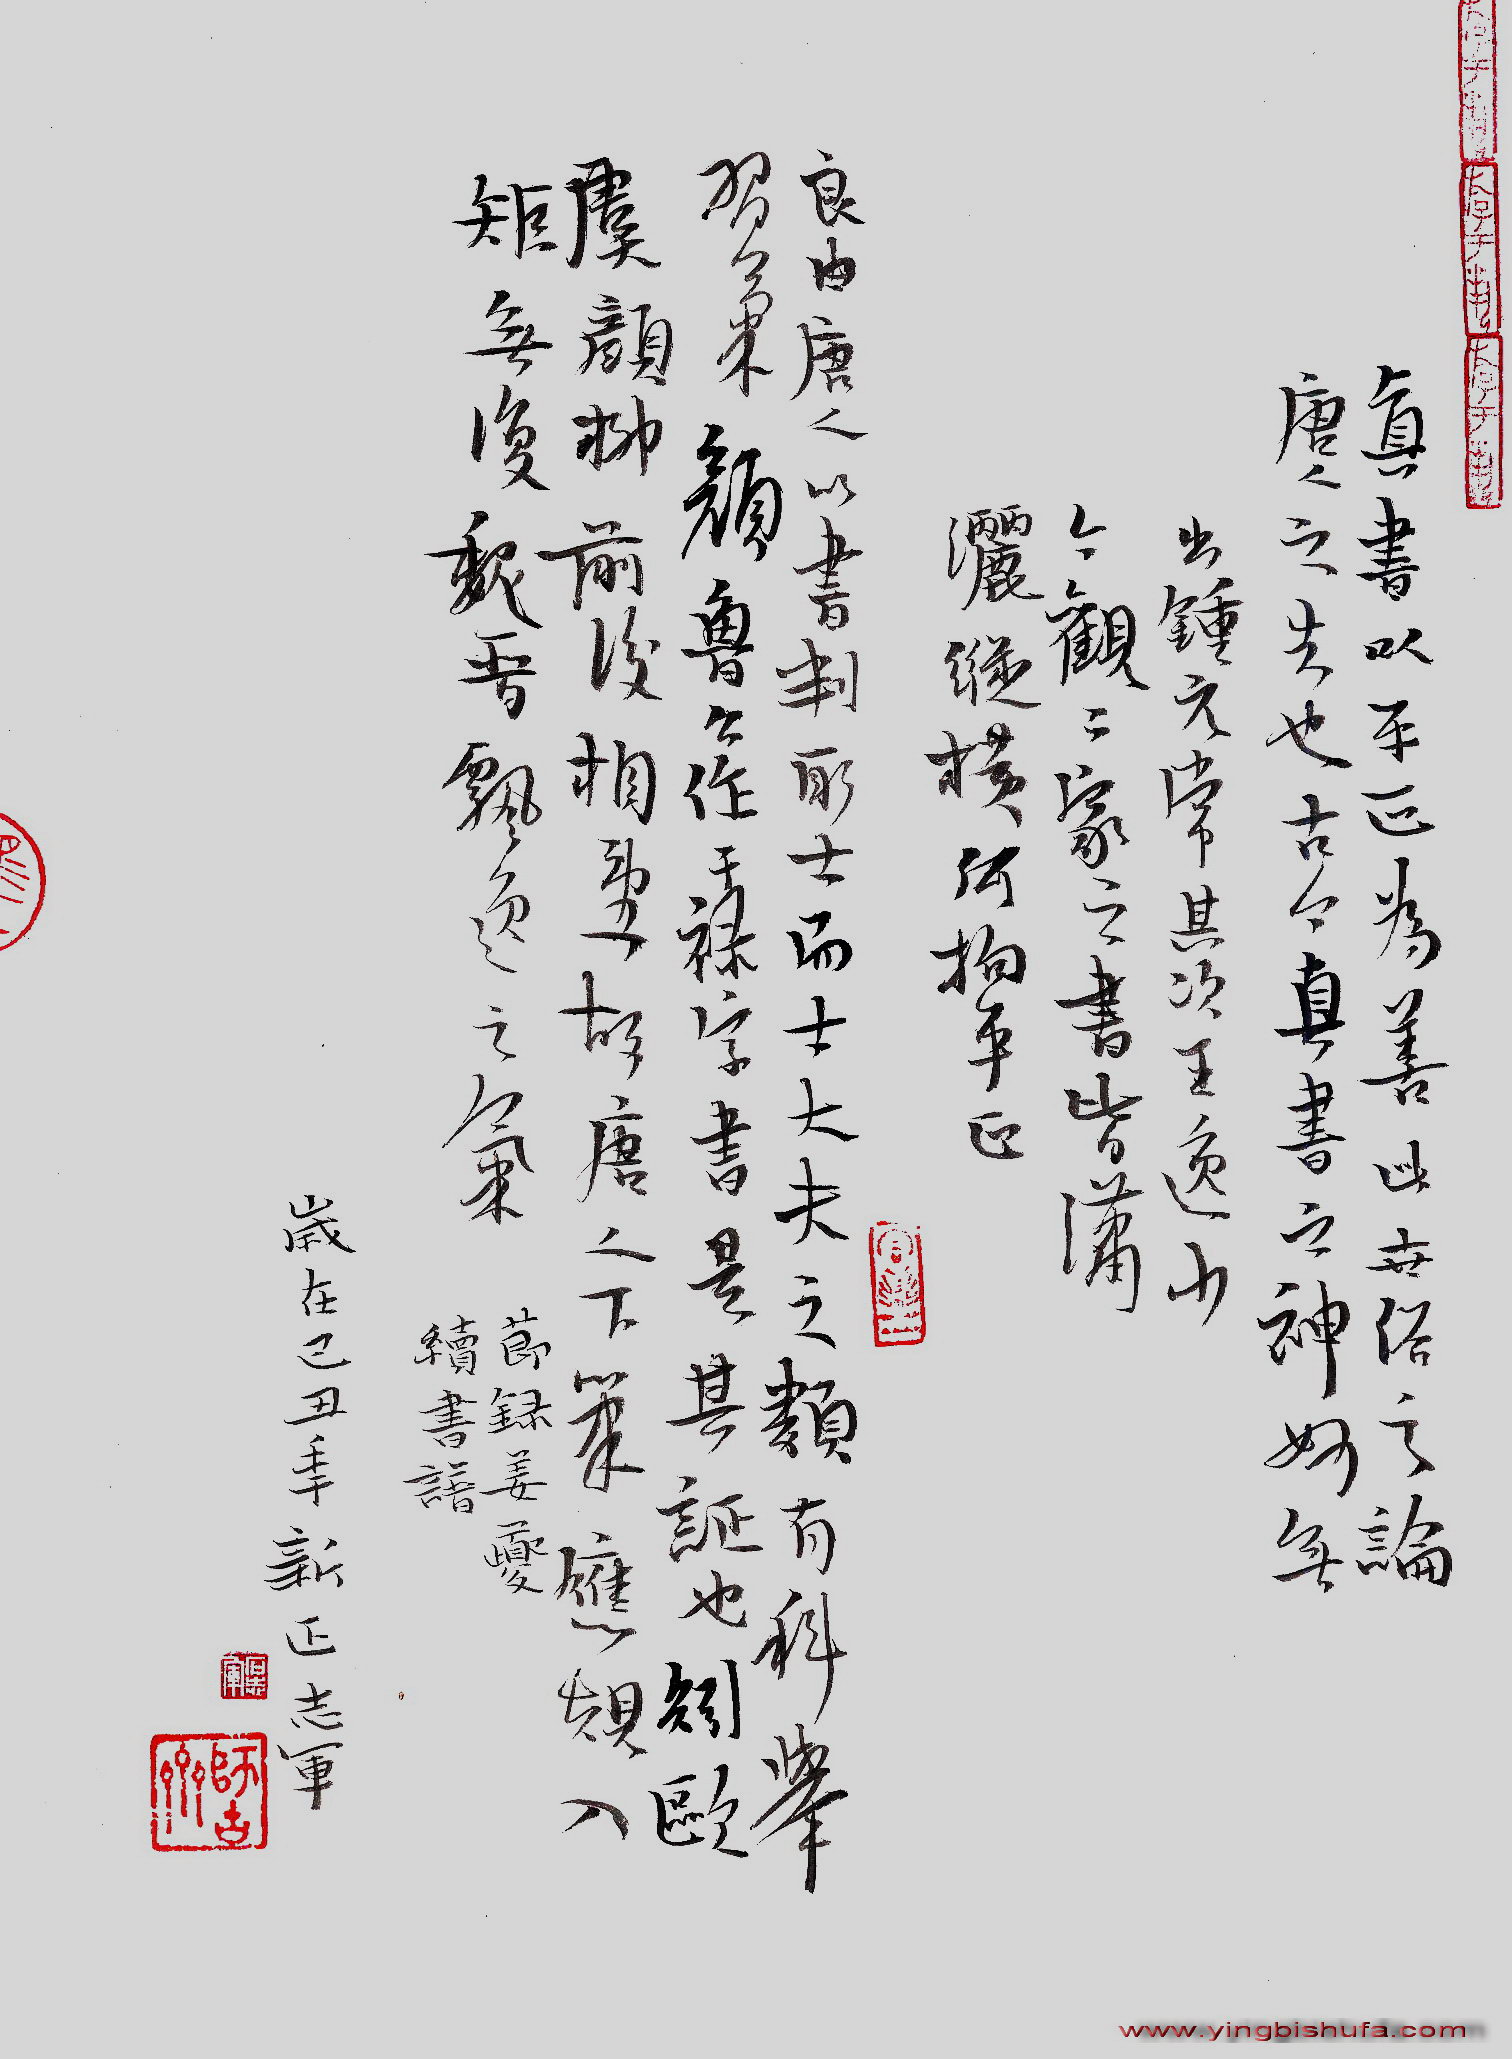 真書以平正為善此世俗之論
唐人之失也古今真書之神妙無
出鍾元常其次王逸少
今觀二家之書皆瀟
灑縱橫何拘平正
良由唐人以書判取士而士大夫之類有科舉
習氣顏魯公作干祿字書是其証也矧歐
虞顏柳前後相望故唐人下筆應規入
矩無復魏晉飄逸之氣
節録姜夔
續書譜
歲在己丑年新正志軍
師古
www.yingbishufa.com